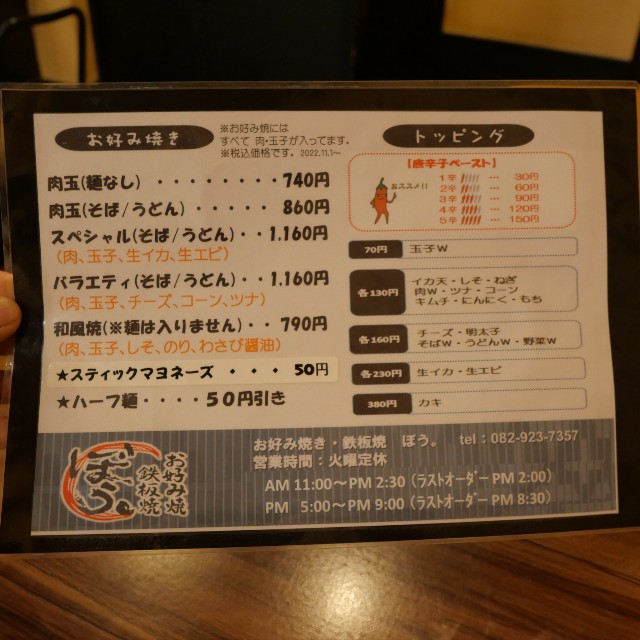 お好み焼き
※お好み焼には
すべて 肉・玉子が入ってます。
※税込価格です。2022.11.1～
肉玉(麺なし) ・・・・・・・・740円
肉玉(そば/うどん) ・・・・・ 860円
スペシャル(そば/うどん)・・1.160円
(肉、玉子、生イカ、生エビ)
バラエティ(そば/うどん)・・1.160円
(肉、玉子、チーズ、コーン、ツナ)
和風焼(※麺は入りません)・・790円
(肉、玉子、しそ、のり、わさび醤油)
★スティックマヨネーズ ・・・ 50円
★ハーフ麺・・・・50円引き
トッピング
【唐辛子ペースト】
おススメ!!
1辛 ・・・ 30円
2辛 ・・・ 60円
3辛 ・・・ 90円
4辛 ・・・ 120円
5辛 ・・・ 150円
70円 玉子W
各130円 イカ天・しそ・ねぎ
肉W・ツナ・コーン
キムチ・にんにく・もち
各160円 チーズ・明太子
そばW・うどんW・野菜W
各230円 生イカ・生エビ
380円 カキ
ぼう。
お好み焼
鉄板焼
お好み焼き・鉄板焼 ぼう。 tel：082-923-7357
営業時間：火曜定休
AM 11:00～PM 2:30（ラストオーダーPM 2:00）
PM 5:00～PM 9:00（ラストオーダーPM 8:30）